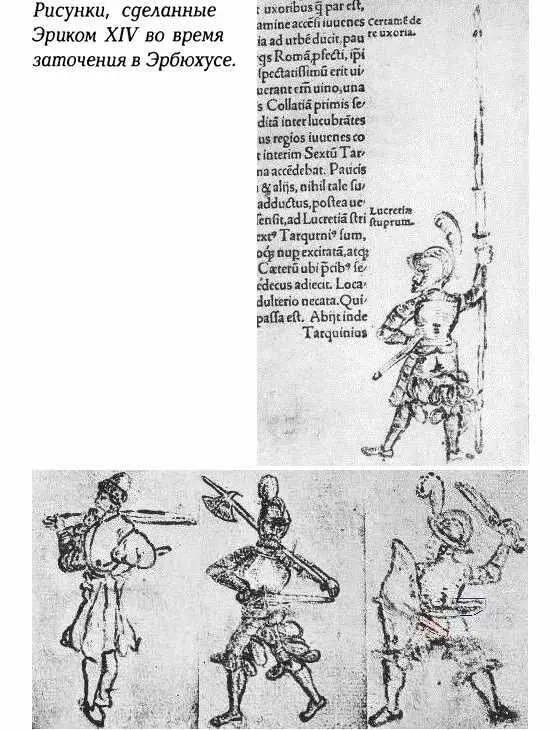 Рисунки, сделанные
Эриком XIV во время
заточения в Эрбюхусе.
t uxoribus q̃ par est,
amine accẽsi iuuenes
ia ad urbẽ ducit, pau
qs Romã ꝓfecti, ip̃i
spectatissimũ erit ui/
uerant em̃ uino, una
s Collatiã primis se/
ditã inter lucubrãtes
us regios iuuenes co
t interim Sextũ Tar/
na accẽdebat. Paucis
& alijs, nihil tale su/
adductus, postea ue/
sensit, ad Lucretiã stri
extꝰ Tarqurniꝰ sum,
oq́ꝫ nup excitatã, atq́ꝫ
Cæterũ ubi p̃cibꝰ se/
ẽdecus adiecit. Loca/
dulterio necata. Qui/
passa est. Abijt inde
Tarquinius
Certamẽ de
re uxoria.
Lucretiæ
stuprum.